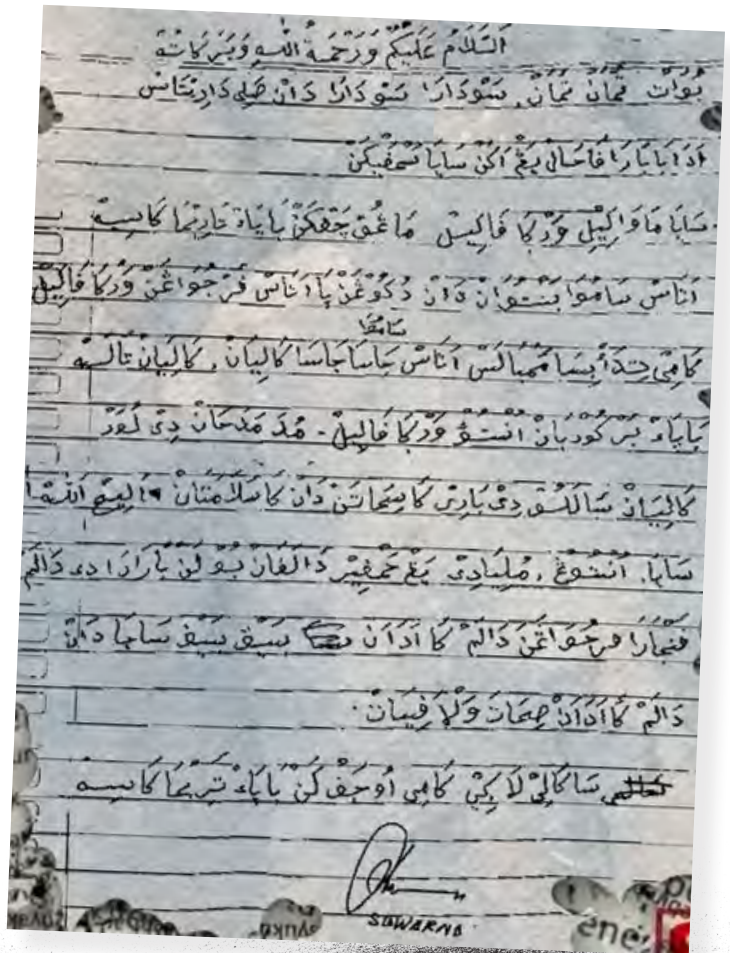 اَلسَّلَامُ عَلَيْكُمْ وَرَحْمَةُ اللهِ وَبَرَكَاتُهُ
بُوَات تمَانْ تمَانْ. سَوْدَارَا سَوْدَارَا دَانْ صَلِي دَارِيتَاسْ
اَدَا بَابَارَا فَا حَال يَڠْ اَكَنْ سَايَا سَمْفَيْكَنْ
سَايَا مَاوَاكِيْلِي وَرْكَا فَالِيلْ مَاڠُوچَفْكَنْ بَاپَاءْ تَارِيْمَا كَاسِيهْ
اَتَاسْ سَامُوَا بَنْتُوَانْ دَانْ دُكُوْڠَنْ پَا اَتَاسْ فَرْجُوَاڠَنْ وَرْكَا فَالِيْلْ
سَامُوَا
كَامِيْ تِدَاْ بِيسَا مَمْبَالَسْ اَتَاسْ جَاسَا جَاسَا كَالِيَانْ. كَالِيَانْ تَالَهْ
بَاپَاءْ بَرْكَوْرْبَانْ اُنْتُوْقْ وَرْكَا فَالِيلْ. مُدَ مَدَحَانْ دِيْ لُوَرْ
كَالِيَانْ سَالَالُو دِيْ بَارِيْ كَاسِيحَاتَنْ دَانْ كَاسَلَامَتَانْ اللهْ
سَايَا. اُنْتُوْڠْ. مُلِيَادِيْ يَڠْ حَمْفِيْر دَالَفَانْ بُوْلَنْ بَارَادَا دِي دَالَمْ
فَنْجَارَا فرجُوَاڠَنْ دَالَمْ كَا اَدَانْ بَيْقْ بَيْقْ سَاجَا دَانْ
دَالَمْ كَا اَدَانْ صِحَاتْ وَلْاَفِيَاتْ.
سَا كَالِيْ لَا كِيْ كَامِي اُوْچَفْ كَنْ بَاپَاءْ تَرِيْمَا كَاسِيهْ
SUWARNO.